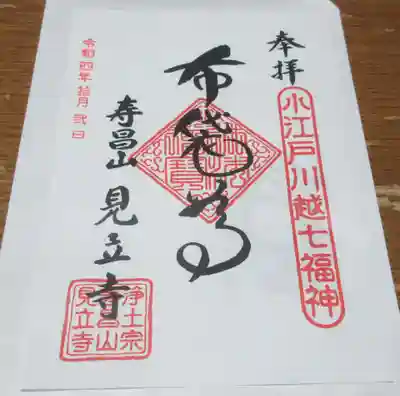 奉拝
小江戸川越七福神
布袋尊
寿昌山 見立寺
浄土宗
昌山
見立寺
令和四年拾月弐日